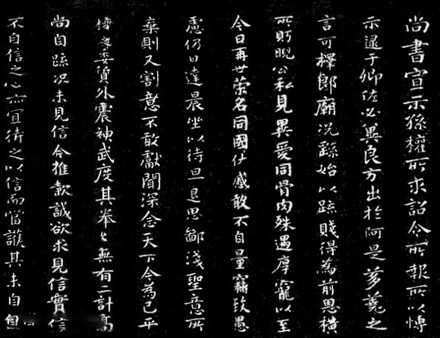 尚書宣示孫權所求詔令所報所以博
示逮于卿佐必冀良方出於阿是芻蕘之
言可擇郎廟況繇始以疏賤得為前恩橫
所盱睨公私見異愛同骨肉殊遇厚寵以至
今日再世榮名同國休慼敢不自量竊致愚
慮仍日達晨坐以待旦退思鄙淺聖意所
棄則又割意不敢獻聞深念天下今為已平
權之委質外震神武度其拳々無有二計高
尚自疏況未見信今推款誠欲求見信實
不自信之心亦宜待之以信而當護其未自